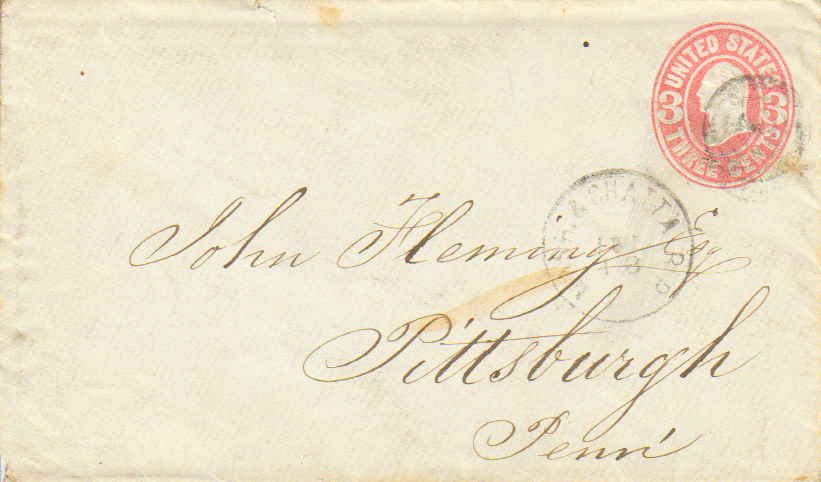 UNITED STATES
3 3
THREE CENTS
& CHATTA. R.
John Fleming Esq
Pittsburgh
Penn'